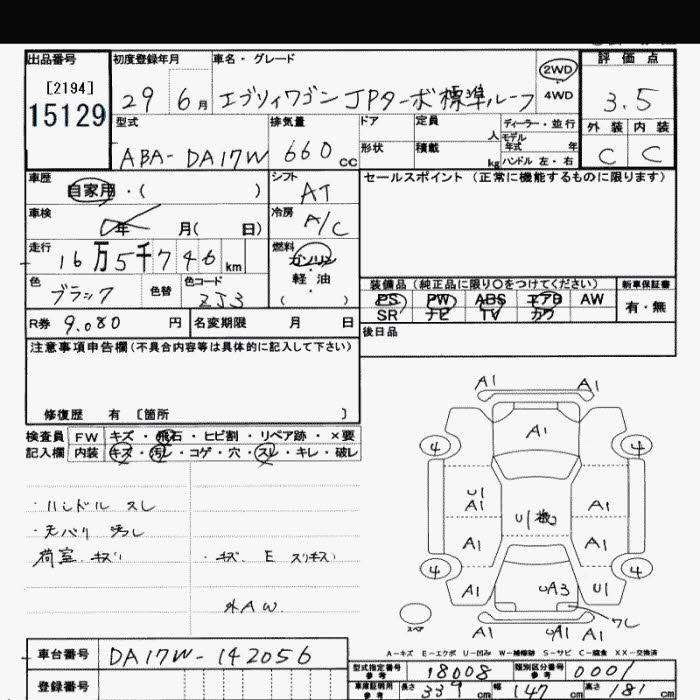 出品番号
[2194]
15129
初度登録年月
29 6月
車名・グレード
エブリィワゴン JPターボ 標準ルーフ
2WD
4WD
評価点
3.5
外装 内装
C C
型式
ABA- DA17W
排気量
660 cc
ドア
形状
定員
人
積載
kg
ディーラー・並行
モデル
年式 年
ハンドル 左・右
車歴
自家用・( )
シフト
AT
セールスポイント (正常に機能するものに限ります)
車検
年 月( 日)
冷房
A/C
走行
16万5千746km
燃料
ガソリン
軽油
( )
色
ブラック
色替
色コード
ZJ3
装備品 (純正品に限り○をつけてください)
PS PW ABS エアB AW
SR ナビ TV カワ
新車保証書
有・無
R券 9.080 円
名変期限 月 日
後日品
注意事項申告欄(不具合内容等は具体的に記入して下さい)
修復歴 有 [箇所 ]
検査員
記入欄
FW キズ・飛石・ヒビ割・リペア跡・×要
内装 キズ・汚レ・コゲ・穴・スレ・キレ・破レ
・ハンドル スレ
・天バリ 汚レ
荷室 キズ
・キズ E スリキズ
外AW
A1 A1
A1
4 4
U1
A1 A1
U1
A1 A1
4 4
A1 UA3 U1
スペア
A1 UA1 A1
A-キズ E-エクボ U-凹み W-補修跡 S-サビ C-腐食 XX-交換済
車台番号
DA17W-142056
登録番号
型式指定番号
参考
18008
類別区分番号
参考
0001
車庫証明用
参考
長さ 339cm
幅 147cm
高さ 181cm